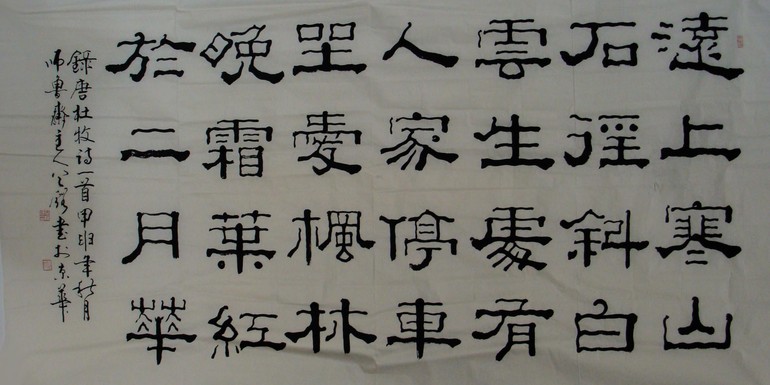 遠上寒山
石徑斜白
雲生處有
人家停車
坐愛楓林
晚霜葉紅
於二月華
錄唐杜牧詩一首甲申年秋月
師魯齋主人書於京華